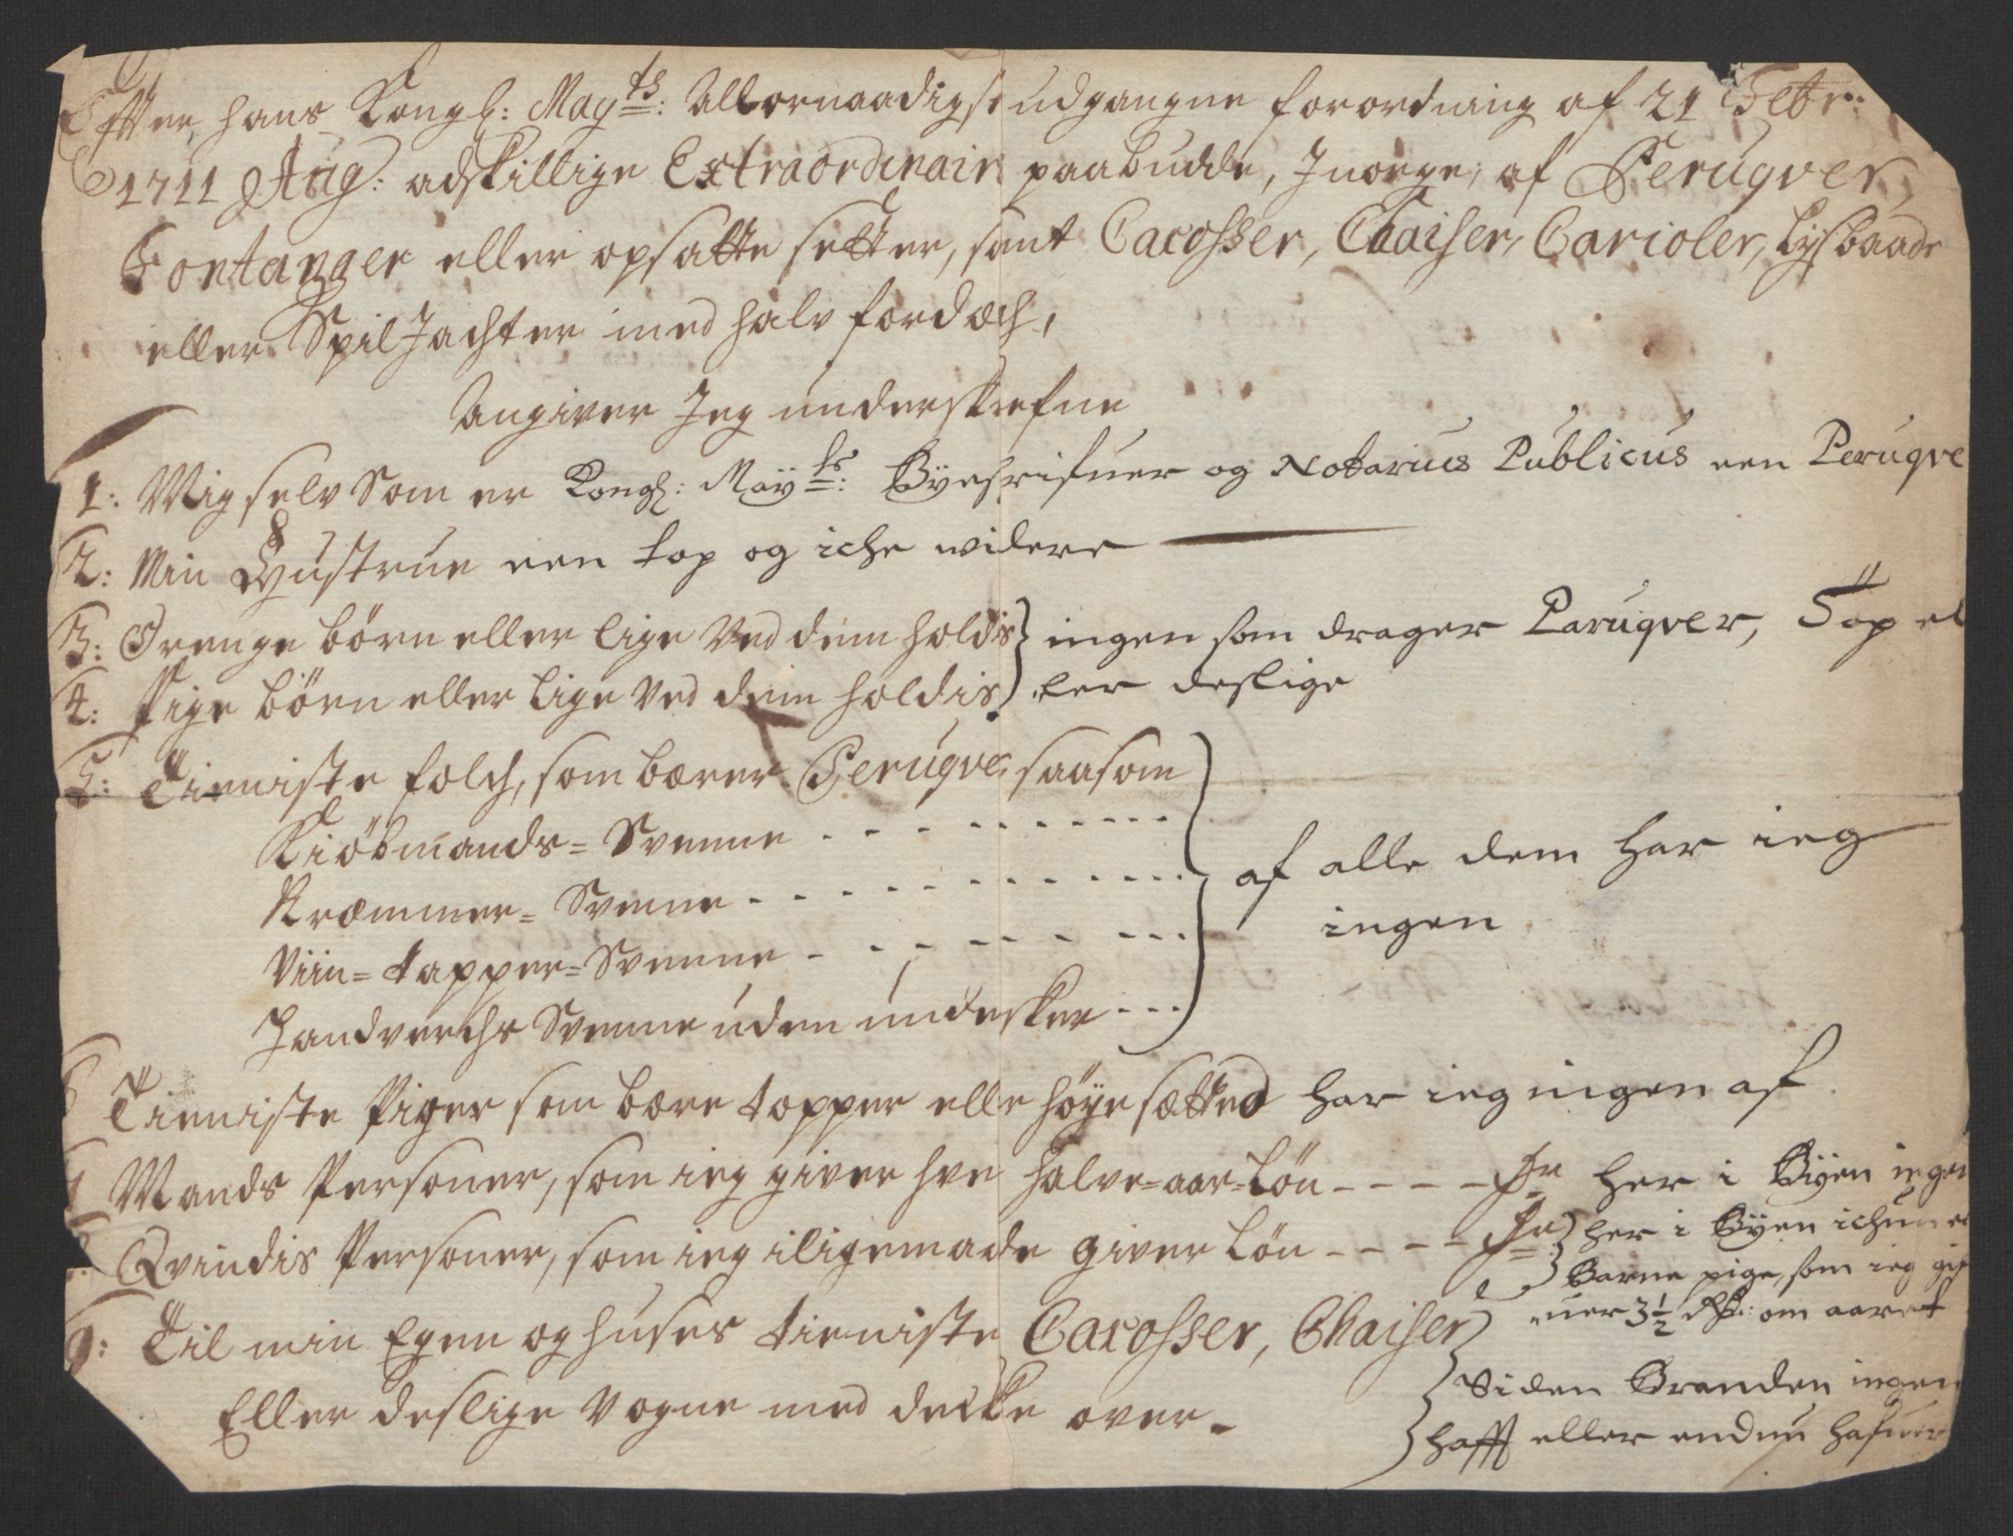 Effter hans Kongl: May^ts: Allernaadigst udgangne forordning af 21 Febr:
1711 Ang: adskillige Extraordinair paabudde, J norge, af Peruqver,
Fontanger eller opsatte setter, samt Carosser, Chaiser, Carioler, Lysbaade
eller SpilJachter med halv fordæch,
Angiver Jeg underskrefne
1: Mig selv Som er Kongl: Maÿ^ts: Bÿeskrifuer og Notarius Publicus een Peruqve
2: Min Hustrue een top og iche widere
3: Drenge børn eller lige Ved dem holdis } ingen som drager Paruqver, Top el
4: Pige børn eller lige Ved dem holdis } ler deslige
5: Tieniste folch, som bærer Peruqve, saasom
Kiøbmands= Svenne - - - - - - - - - -
Kræmmer= Svenne - - - - - - - - - - - af alle dem har ieg
Viin= tapper= Svenne - - - - - - - - ingen
Handverchs Svenne uden underskee - - -
6 Tieniste Piger som bære topper eller høye sætter har ieg ingen af
7 Mands Personer, som ieg giver hve halve=aar=Løn - - - - her i Bÿen ingen
8: Qvindis Personer, som ieg iligemade giver Løn - - - - her i Bÿen ichun en
Barne pige, som ieg gif
uer 3 1/2 Rdr: om aaret
9: Til min Egen og huses tieniste Carosser, Chaiser
Eller deslige Vogne med decke over -
Siden Branden ingen
hafft eller endnu hafuer